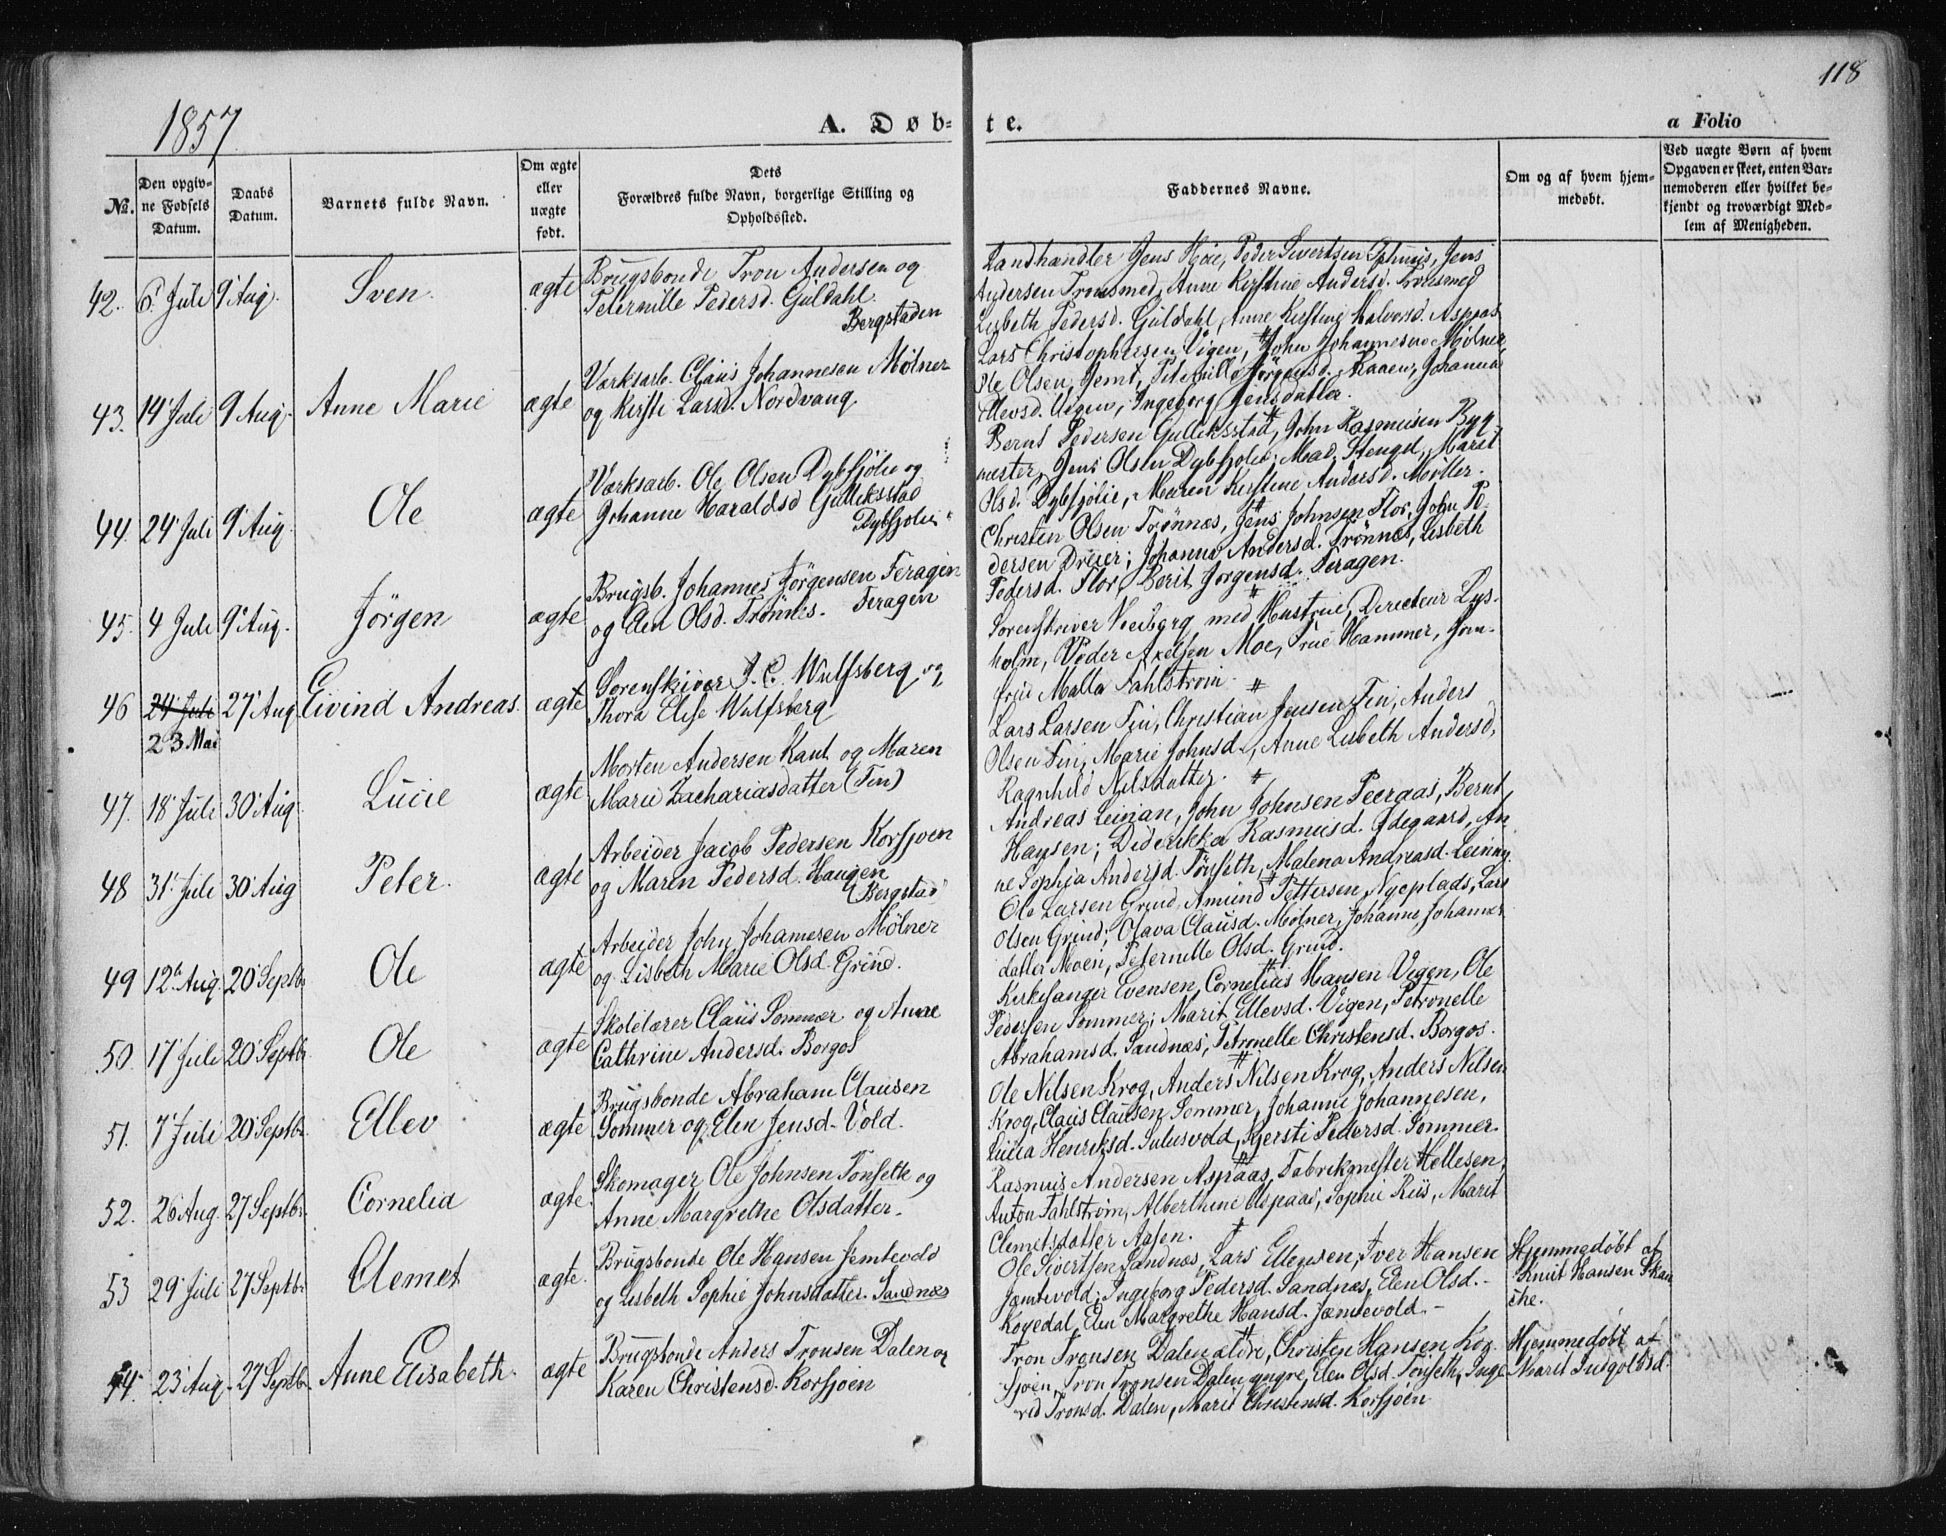 118
1857
A. Døb-
te.
a Folio
No.
Den opgiv-
ne Fødsels
Datum.
Daabs
Datum.
Barnets fulde Navn.
Om ægte
eller
uægte
født.
Dets
Forældres fulde Navn, borgerlige Stilling og
Opholdssted.
Faddernes Navne.
Om og af hvem hjem-
medøbt.
Ved uægte Børn af hvem
Opgaven er skeet, enten Bar-
nemoderen eller hvilket be-
kjendt og troværdigt Med-
lem af Menigheden.
42. 6. Juli 9' Aug. Sven. ægte
Brugsbonde Tron Andersen og
Peternille Pedersd. Guldahl.
Bergstaden
Landhandler Jens Høie, Peder Sivertsen Jens
Andersen Tronsmed, Anne Kirstine Andersd. Tronsmed
Lisbeth Pedersd. Guldahl, Anne Kirstine Halvorsd. Aspaas
43. 14' Juli 9 Aug. Anne Marie ægte
Værksarb. Claus Johannesen Mølner
og Kirsti Larsd. Nordvang
Lars Christophersen Vigen, John Johannesen Mølner,
Ole Olsen Jemt, Peternille Jørgensd. Johanna
Ellevsd. Vigen, Ingeborg Jensdatter.
44. 24' Juli 9' Aug. Ole ægte
Værksarb. Ole Olsen Dybsjølie og
Johanne Haraldsd Gulliksstad
Dybsjølie
Bernt Pedersen Gulliksstad, John Rasmusen Byg-
mester, Jens Olsen Dybsjølie, Mad. Stengel, Marit
Olsd. Dybsjølie, Maren Kirstine Andersd. Møller.
45. 4 Juli 9' Aug. Jörgen ægte
Brugsb. Johannes Jörgensen Feragen
og Elen Olsd. Trönnes. Feragen
Christen Olsen Trønnæs, Jens Johnsen Flor, John Pe-
dersen Dreier; Johanne Andersd. Trønnæs, Lisbeth
Pedersd. Flor, Berit Jørgensd. Feragen.
46 24' Juli 27' Aug Eivind Andreas. ægte
23 Mai
Sorenskriver J. C. Wulfsberg og
Thora Elise Wulfsberg
Sorenskriver med Hustrue, Directeur Lys-
holm, Peder Axelsen Moe, Frue Hammer, Jom-
frue Malla Fahlstrøm.
47. 18' Juli 30' Aug. Lucie ægte
Morten Andersen Kant og Maren
Marie Zachariasdatter (Fin)
Lars Larsen Fin, Christian Jensen Fin, Anders
Olsen Fin, Marie Johnsd., Anne Lisbeth Andersd,
Ragnhild Nilsdatter.
48 31' Juli 30' Aug Peter. ægte
Arbeider Jacob Pedersen Korssjøen
og Maren Pedersd. Haugen
(Bergstad)
Andreas John Johnsen Peeraas, Bernt
Hansen; Diderikka Rasmusd. Ødegaard, An-
ne Sophia Andersd. Tønseth, Malena Andreasd.
49 12' Aug. 20' Septbr. Ole ægte
Arbeider John Johannesen Mølner
og Lisbeth Marie Olsd. Grind.
Ole Larsen Grind, Amund Pettersen Nyeplads, Lars
Olsen Grind, Olava Clausd. Mølner, Johanne Johannes-
datter Moen, Peternille Olsd. Grind.
50. 17' Juli 20' Septbr. Ole ægte
Skolelærer Claus Sommer og Anne
Cathrine Andersd. Borgos
Kirkesanger Evensen, Cornelius Hansen Vigen, Ole
Pedersen Sommer; Marit Ellevsd. Vigen, Petronelle
Abrahamsd. Sandnæs, Petronelle Christensd. Borgos.
51. 7' Juli 20' Septbr. Ellev ægte
Brugsbonde Abraham Clausen
Sommer og Elen Jensd. Vold.
Ole Nilsen Krog, Anders Nilsen Krog, Anders Nilsen
Krog, Claus Clausen Sommer, Johanne Johannesen,
Lucia Henriksd. Kjersti Pedersd. Sommer.
52. 26' Aug. 27 Septbr. Cornelia ægte.
Skomager Ole Johnsen Tonseth og
Anne Margrethe Olsdatter.
Rasmus Andersen Aspaas, Fabrikmester Hellesen,
Anton Fahlstrøm, Alberthine Aspaas, Sophie Riis, Marit
Clemetsdatter Aasen.
53 29' Juli 27 Septbr. Clemet ægte.
Brugsbonde Ole Hansen Jemtvold
og Lisbeth Sophie Johnsdatter. Sandnæs
Ole Sivertsen Sandnæs, Lars Ellevsen, Iver Hansen
Jæmtevold; Ingeborg Pedersd. Sandnæs, Elen Olsd.
Elen Margrethe Hansd. Jæmtevold.
Hjemmedøbt af
Knut Hansen Skan-
che.
54. 23' Aug. 27 Septbr. Anne Elisabeth. ægte
Brugsbonde Anders Tronsen Dalen og
Karen Christensd. Korssjøen
Tron Tronsen Dalen ældre, Christen Hansen Kor-
sjøen, Tron Tronsen Dalen yngre, Elen Olsd Tonseth, Inge-
rid Tronsd. Dalen, Marit Christensd. Korssjøen
Hjemmedøbt af
Marit Ingolfsd.